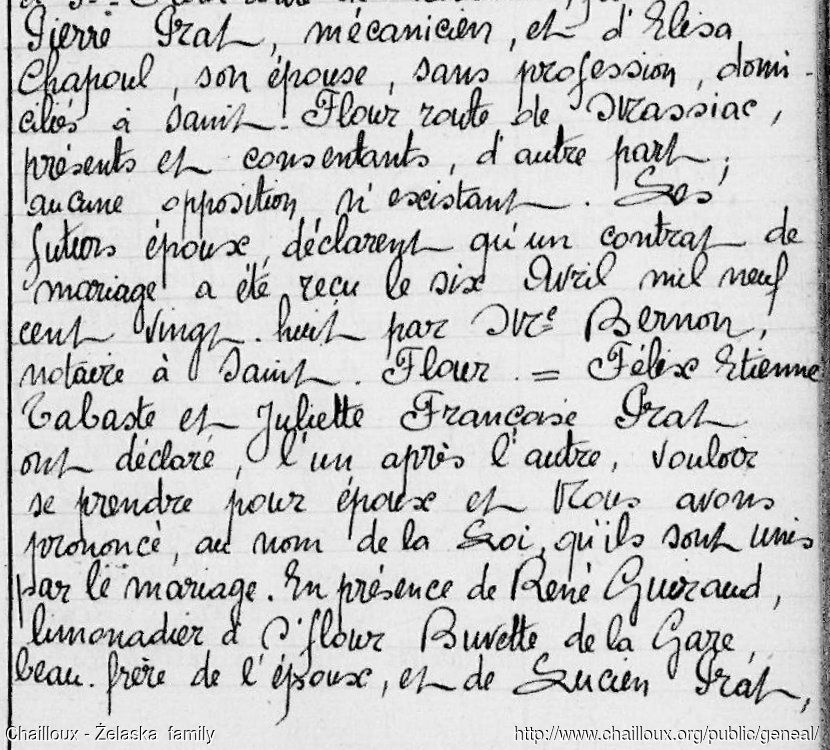 Pierre Prat, mécanicien, et d'Elisa
Chapoul, son épouse, sans profession, domi-
ciliés à Saint-Flour route de Massiac,
présents et consentants, d'autre part;
aucune opposition n'existant. Les
futurs époux, déclarent qu'un contrat de
mariage a été reçu le six Avril mil neuf
cent vingt-huit par Me Bernon,
notaire à Saint-Flour. = Félix Etienne
Tabaste et Juliette Françoise Prat
ont déclaré, l'un après l'autre, vouloir
se prendre pour époux et Nous avons
prononcé, au nom de la Loi, qu'ils sont unis
par le mariage. En présence de René Gueraud,
limonadier à St flour Buvette de la Gare,
beau-frère de l'époux, et de Lucien Prat,
Chailloux - Żelaska family
http://www.chailloux.org/public/geneal/